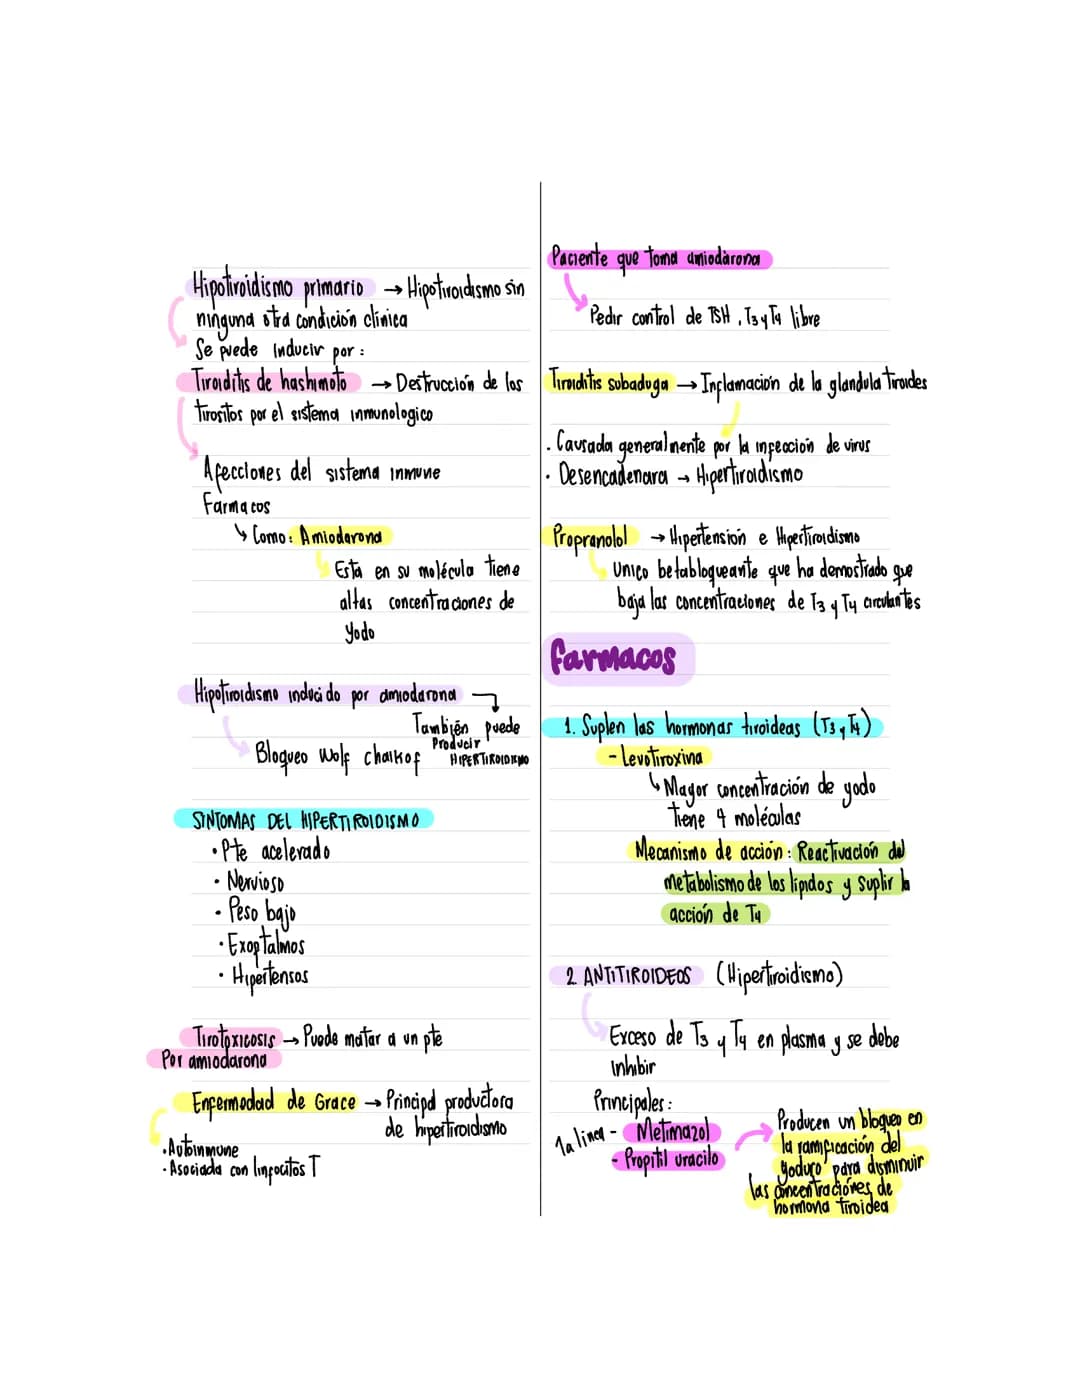 Hipotiroidismo primario → Hipotiroidismo sin
ninguna otra condición clínica
Se puede inducir por:
Tiroiditis de hashimoto → Destrucción de los
tirositos por el sistema inmunologico
Afecciones del sistema inmune
Farmacos
↳ Como: Amiodarona
Esta en su molécula tiene
altas concentraciones de
Yodo
Hipotiroidismo inducido por amiodarona
También puede
Producir
HIPERTIROIDISMO
Bloqueo Wolf chaikof
SINTOMAS DEL HIPERTIROIDISMO
• Pte acelerado
• Nervioso
• Peso bajo
• Exoptalmos
• Hipertensos
Tirotoxicosis → Puede matar a un pte
Por amiodarona
Enfermedad de Grace → Principal productora
de hipertiroidismo
• Autoinmune
• Asociada con linfocitos T
Paciente que toma amiodarona
Pedir control de TSH, T3 y T4 libre
Tiroiditis subaduga → Inflamación de la glandula tiroides
• Causada generalmente por la infección de virus
• Desencadenara → Hipertiroidismo
Propranolol → Hipertensión e Hipertiroidismo
Unico betabloqueante que ha demostrado que
baja las concentraciones de T3 y T4 circulantes
farmacos
1. Suplen las hormonas tiroideas (T3 y T4)
- Levotiroxina
↳ Mayor concentración de yodo
tiene 4 moléculas
Mecanismo de acción: Reactivación del
metabolismo de los lípidos y suplir la
acción de T4
2 ANTITIROIDEOS (Hipertiroidismo)
Exceso de T3 y T4 en plasma y se debe
inhibir
Principales:
1a linea - Metimazol
- Propitil uracilo
Producen un bloqueo en
la ramificación del
yoduro para disminuir
las concentraciones de
hormona tiroidea